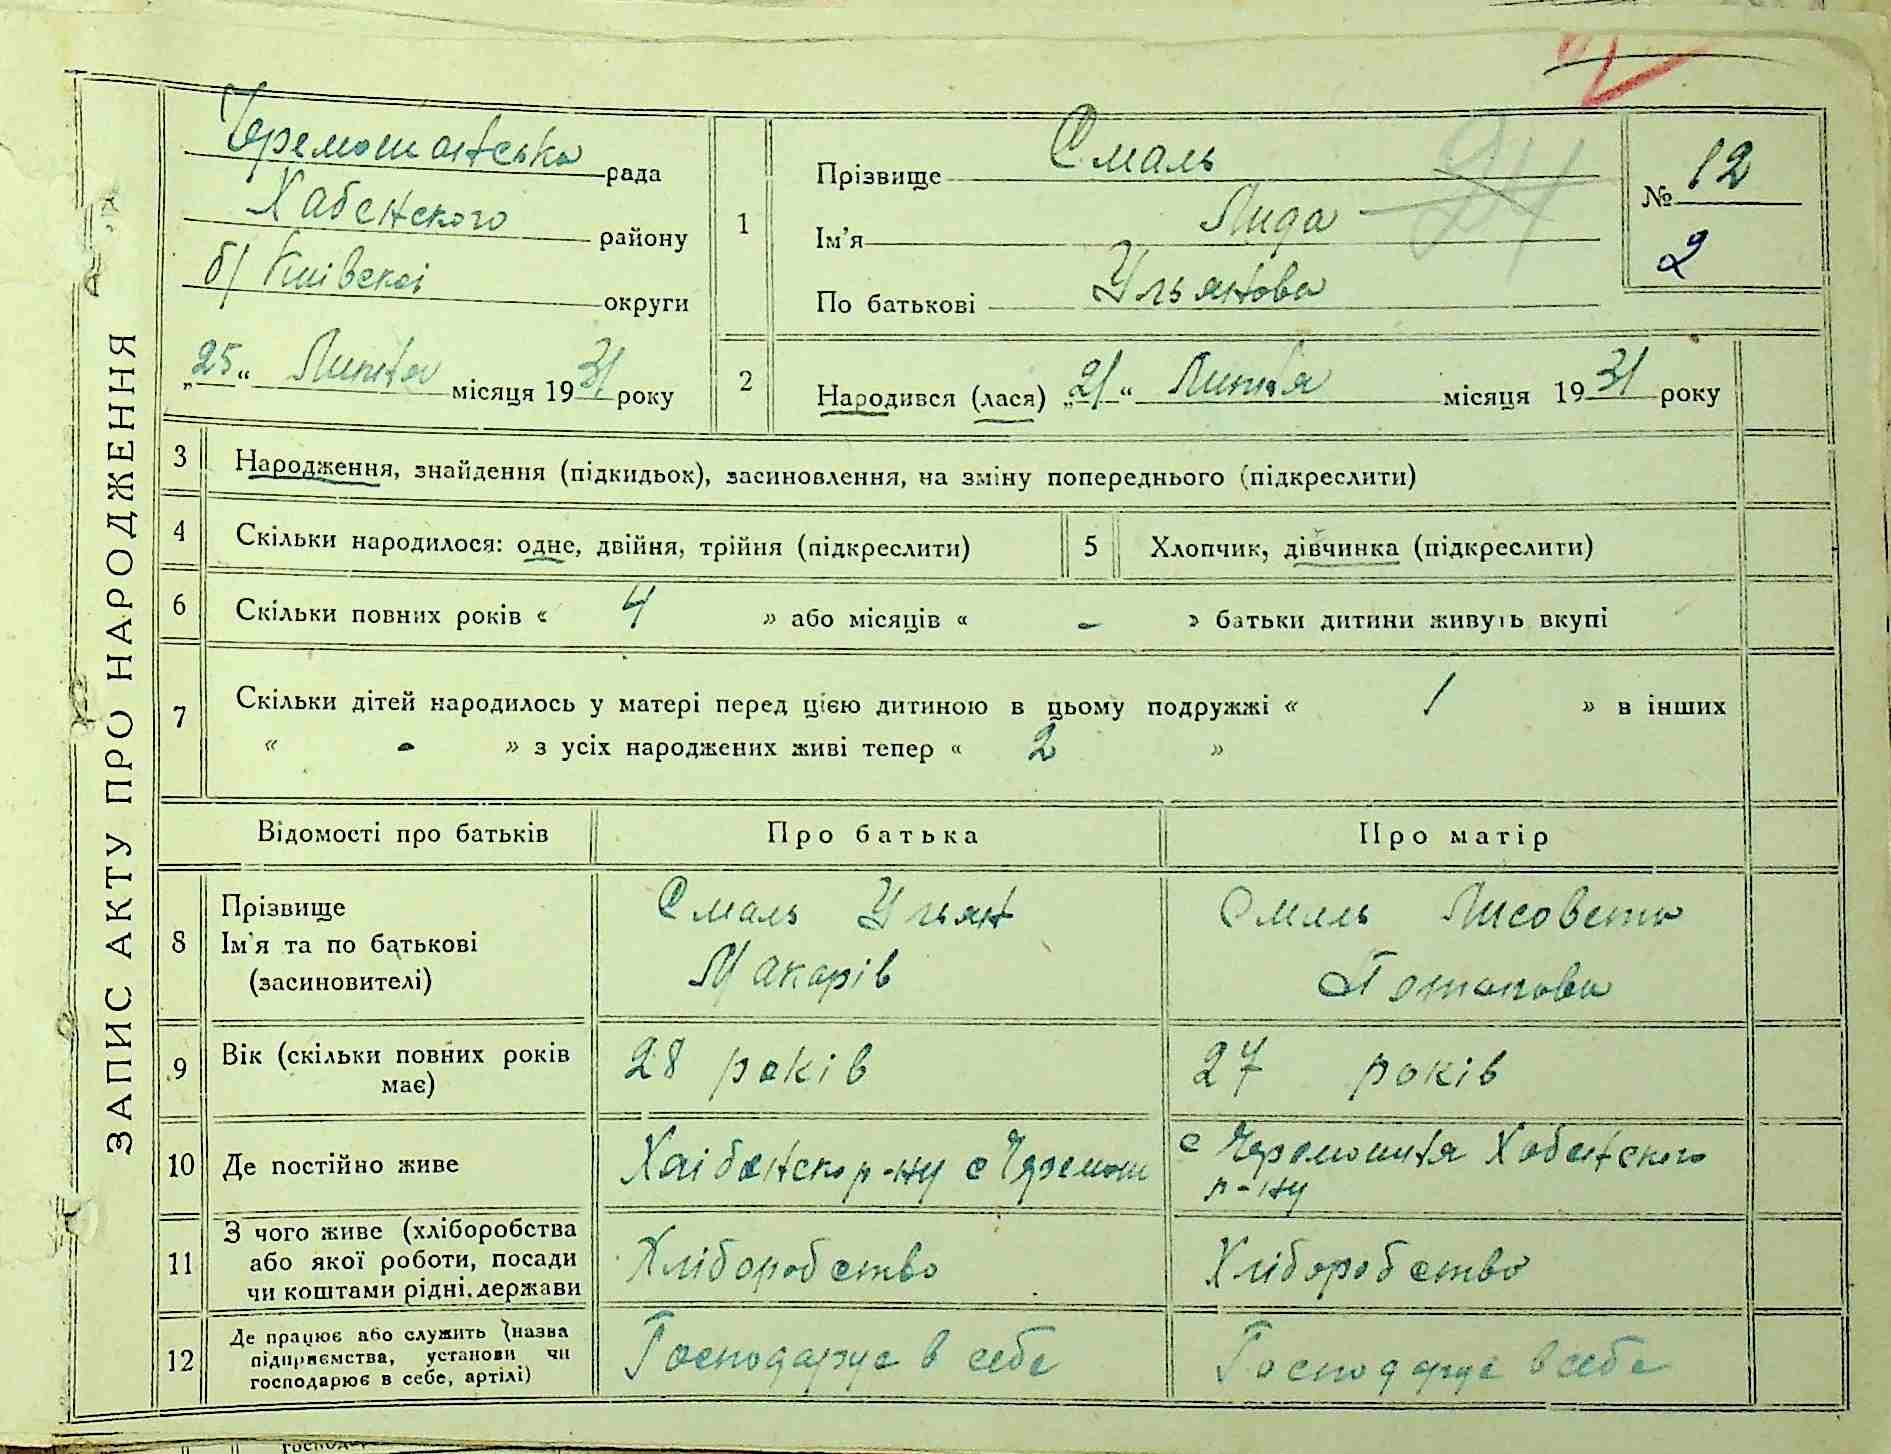 ЗАПИС АКТУ ПРО НАРОДЖЕННЯ
Черемошнянська рада
Хабенского району
б/ Київскоі округи
„25“ Липня місяця 1931 року
1 Прізвище Смаль
Ім'я Лида
По батькові Ульянова
24
№ 12
2
2 Народився (лася) „21“ Липня місяця 1931 року
3 Народження, знайдення (підкидьок), засиновлення, на зміну попереднього (підкреслити)
4 Скільки народилося: одне, двійня, трійня (підкреслити)
5 Хлопчик, дівчинка (підкреслити)
6 Скільки повних років « 4 » або місяців « - » батьки дитини живуть вкупі
7 Скільки дітей народилось у матері перед цією дитиною в цьому подружжі « 1 » в інших
« - » з усіх народжених живі тепер « 2 »
Відомості про батьків Про батька Про матір
8 Прізвище
Ім'я та по батькові
(засиновителі)
Смаль Ульян
Макарів
Смаль Лисовета
Потапова
9 Вік (скільки повних років
має)
28 років
27 років
10 Де постійно живе
Хабенско р-ну с Черемош
с Черемошня Хабенского
р-ну
11 З чого живе (хліборобства
або якої роботи, посади
чи коштами рідні, держави
Хліборобство
Хліборобство
12 Де працює або служить (назва
підприємства, установи чи
господарює в себе, артілі)
Господарує в себе
Господарує в себе